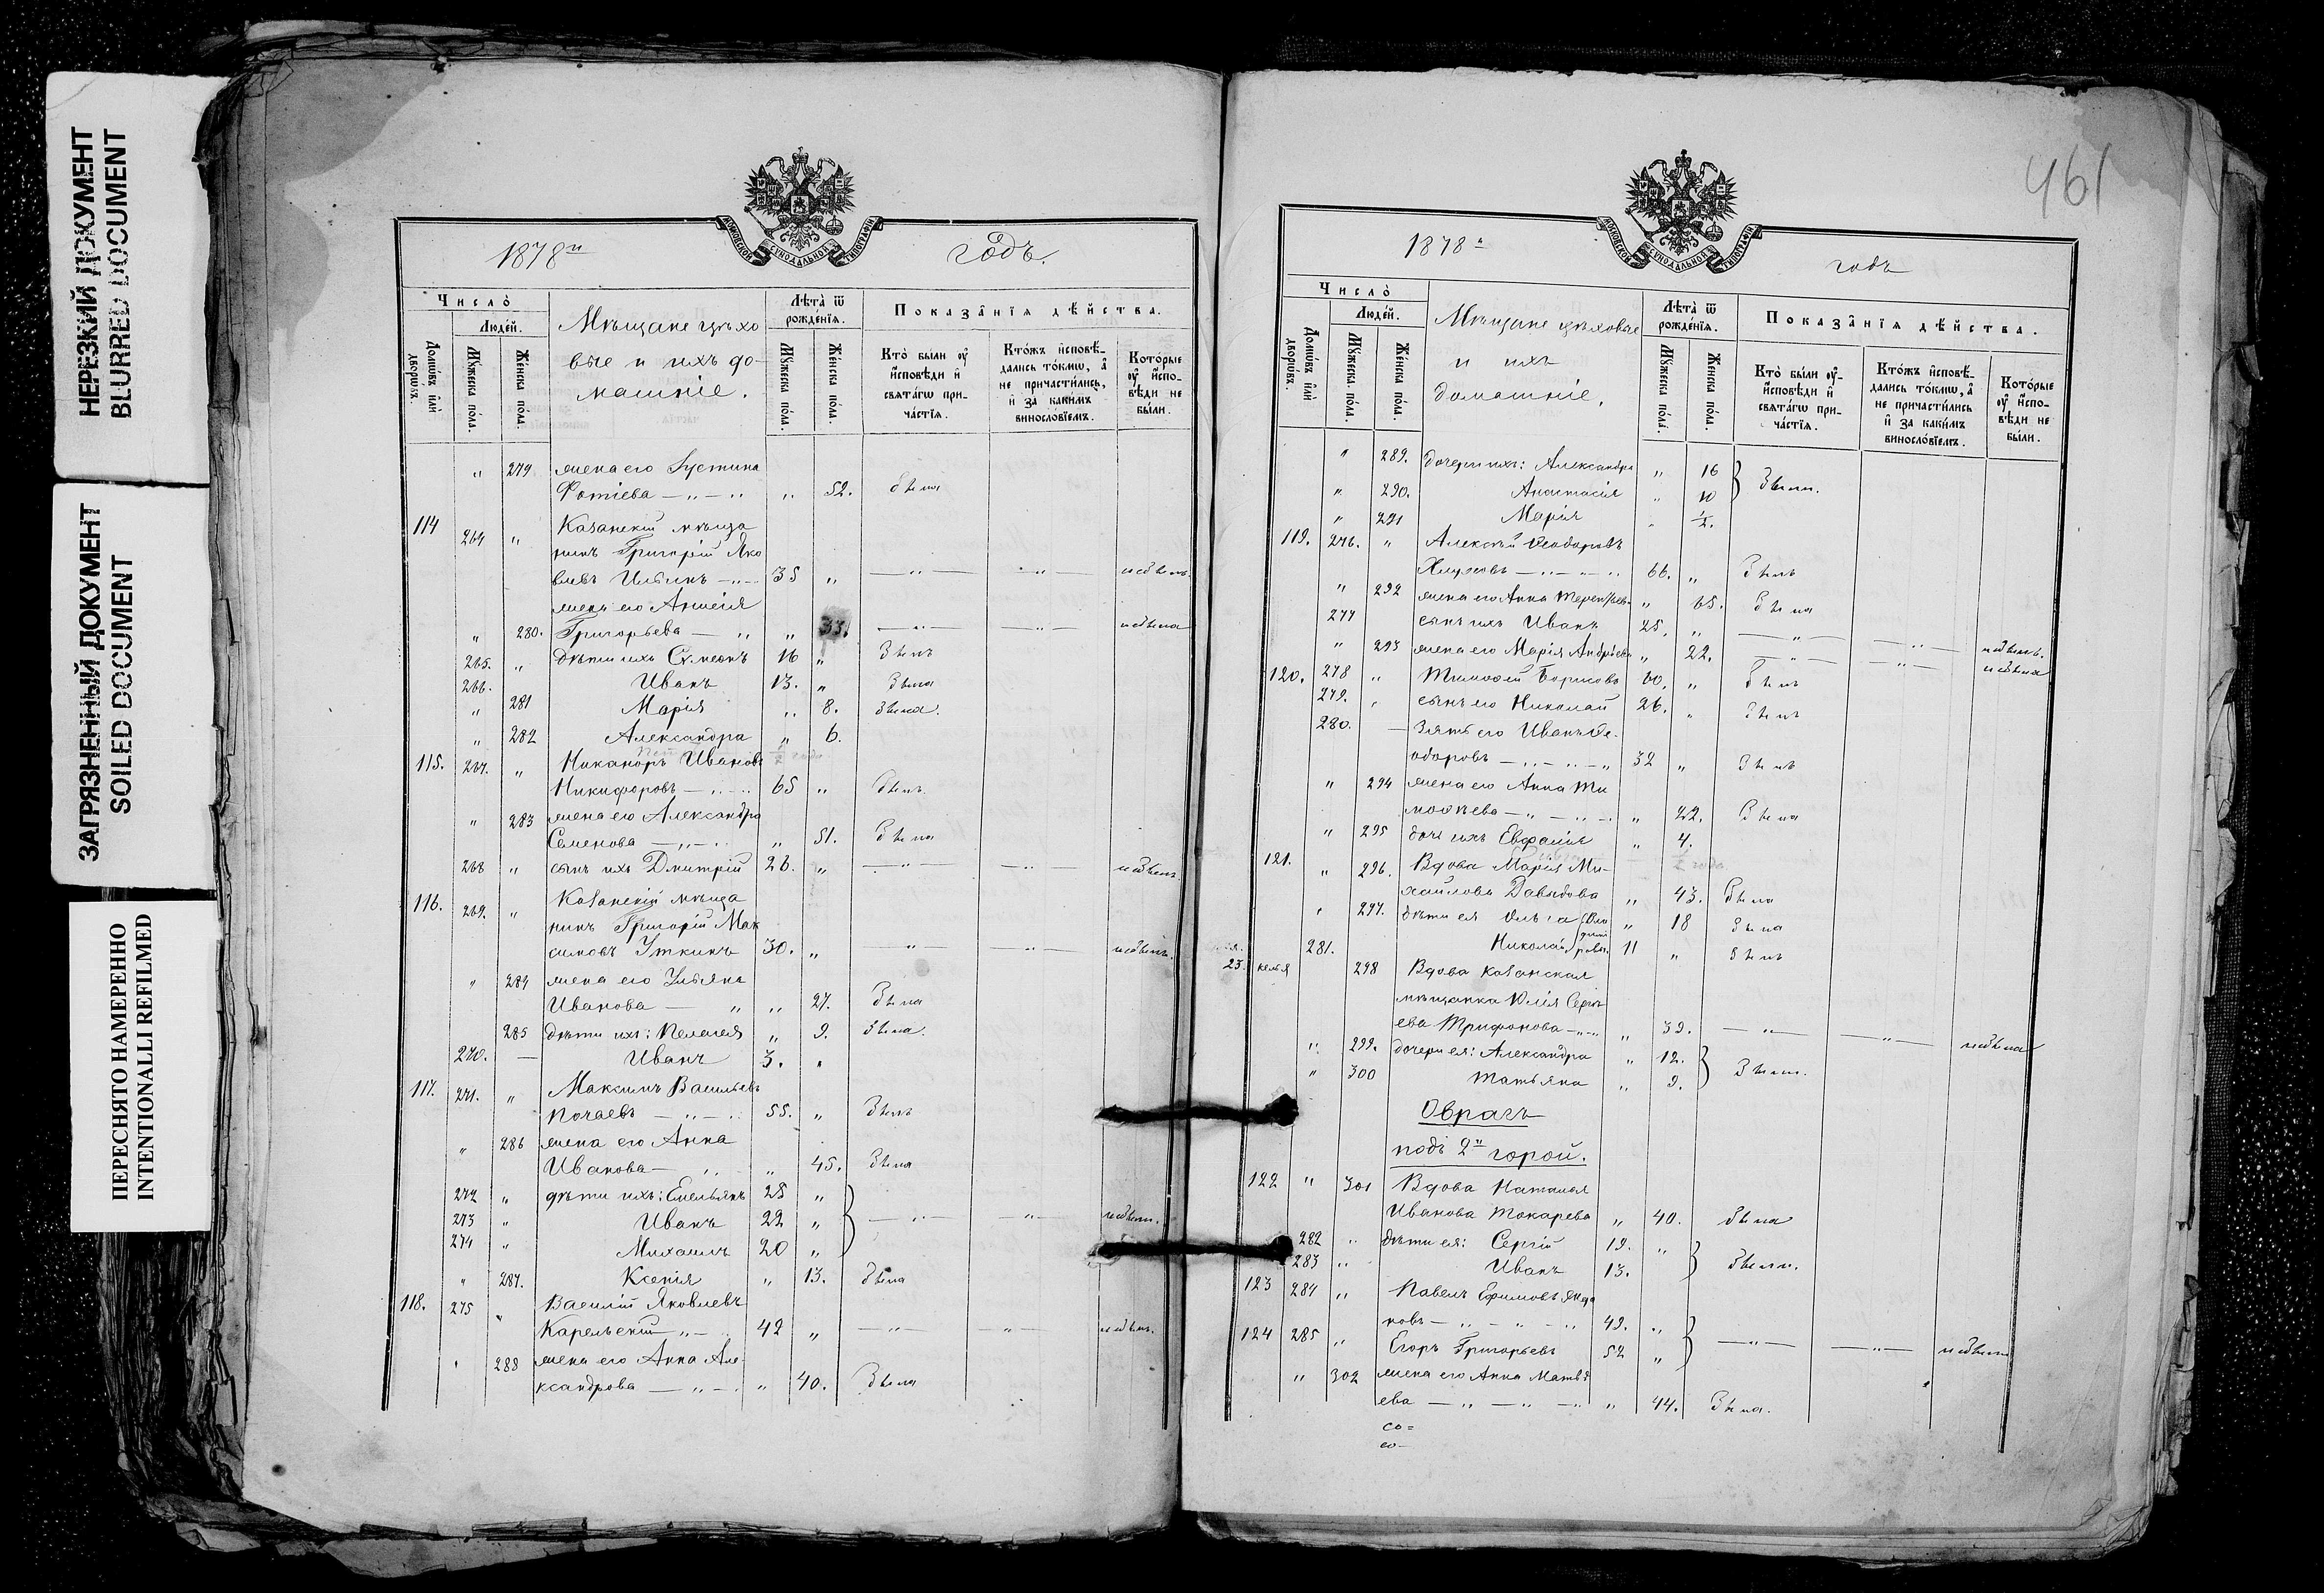 НЕРЕЗКИЙ ДОКУМЕНТ
BLURRED DOCUMENT
ЗАГРЯЗНЕННЫЙ ДОКУМЕНТ
SOILED DOCUMENT
ПЕРЕСНЯТО НАМЕРЕННО
INTENTIONALLI REFILMED
МОСКОВСКОЙ СѴНОДАЛЬНОЙ ТИПОГРАФІИ
1878й годъ.
Число̀
Людей.
Домѡвъ и҆лѝ дворѡвъ.
Мꙋжеска пола.
Женска пола.
Мѣщане цѣхо
вые и ихъ до-
машніе.
Лѣта̀ ѿ рожденїѧ.
Мꙋжеска пола.
Женска пола.
Показанїѧ дѣйства.
Кто̀ были ᲂу҆ и҆сповѣди и҆ свѧтагѡ причастїѧ.
Ктожъ и҆сповѣдались токмѡ, а҆ не причастились, и҆ за какимъ винословїемъ.
Которые ᲂу҆ и҆сповѣди не были.
„ 279 жена его Іустина
Фотіева — „ — „ „ 52. была
114 264 „ Казанскій мѣща
нинъ Григорій Яко
влевъ Ильинъ — „ — 35 „ — „ — — „ — небылъ.
жена его Анисія
„ 280. Григорьева — „ „ 33. — „ — — „ — небыла
265. „ дѣти ихъ Сѵмеонъ 16 „ былъ
266. Иванъ 13. „ была
„ 281 Марія „ 8. была.
„ 282 Александра „ 6.
115. 267. „ Никаноръ Ивановъ
Никифоровъ — „ — „ 65 „ былъ.
„ 283 жена его Александра
Семенова — „ — „ „ 51. была
268 „ сынъ ихъ Дмитрій 26. „ — „ — — „ — небылъ.
116. 269. „ Казанскій мѣща
нинъ Григорій Мак
симовъ Уткинъ 30. „ — „ — — „ — небылъ.
„ 284 жена его Ульяна
Иванова — „ „ 27. была
285 дѣти ихъ: Пелагея „ 9. была.
270. — Иванъ 3. „
117. 271. „ Максимъ Васильевъ
Почаевъ — „ — „ 55. „ былъ
„ 286 жена его Анна
Иванова — „ „ 45. была
272 „ дѣти ихъ: Емельянъ 25 „
273 „ Иванъ 22 „ — „ — — „ — небыли.
274 „ Михаилъ 20 „
„ 287. Ксенія „ 13. была
118. 275 „ Василій Яковлевъ
Карельскій — „ — 42 „ — „ — „ — небылъ.
„ 288 жена его Анна Але-
ксандрова — „ — „ 40. была
461
МОСКОВСКОЙ СѴНОДАЛЬНОЙ ТИПОГРАФІИ
1878й годъ
Число̀
Людей.
Домѡвъ и҆лѝ дворѡвъ.
Мꙋжеска пола.
Женска пола.
Мѣщане цѣховые
и ихъ
домашніе.
Лѣта̀ ѿ рожденїѧ.
Мꙋжеска пола.
Женска пола.
Показанїѧ дѣйства.
Кто̀ были ᲂу҆ и҆сповѣди и҆ свѧтагѡ причастїѧ.
Ктожъ и҆сповѣдались токмѡ, а҆ не причастились и҆ за какимъ винословїемъ.
Которые ᲂу҆ и҆сповѣди не были.
„ 289. дочери ихъ: Александра „ 16 были.
„ 290. Анастасія „ 10
„ 291 Марія „ ½.
119. 276. „ Алексѣй Ѳеодоровъ
— „ — „ — „ 66. „ былъ
„ 292 жена его Анна Терентьева „ 65. была
277 сынъ ихъ Иванъ 25. „ — „ — — „ — небылъ.
„ 293 жена его Марія Андрѣева „ 22. — „ — — „ — небыла
120. 278 „ Тимоѳей Борисовъ 60. „ былъ
279. „ сынъ его Николай 26. „ былъ
280. — Зять его Иванъ Ѳе-
одоровъ — „ — „ — „ 32 „ былъ
„ 294 жена его Анна Ти
моѳѣева — „ — „ — „ 22. была
„ 295 дочь ихъ Евфалія „ 4.
121. „ 296. Вдова Марія Ми-
хайлова Давыдова „ 43. была
„ 297. дѣти ея Ольга „ 18 была
281. Николай 11 „ былъ
23. келья 298 Вдова Казанская
мѣщанка Юлія Сергѣ
ева Трифонова — „ — „ 39. — „ — — „ — небыла
„ 299. дочери ея: Александра „ 12. были.
„ 300 Татьяна „ 9.
Оврагъ
подъ 2й горой.
122 „ 301 Вдова Наталья
Иванова Токарева „ 40. была
282 „ дѣти ея: Сергій 19. „ были.
283 „ Иванъ 13.
123 284 „ Павелъ Ефимовъ
ковъ — „ — „ — „ 49. „
124 285 „ Егоръ Григорьевъ 52 „ — „ — — „ — небыли
„ 302 жена его Анна Матвѣ
ева — „ — „ — „ „ 44. была.
со=
со—